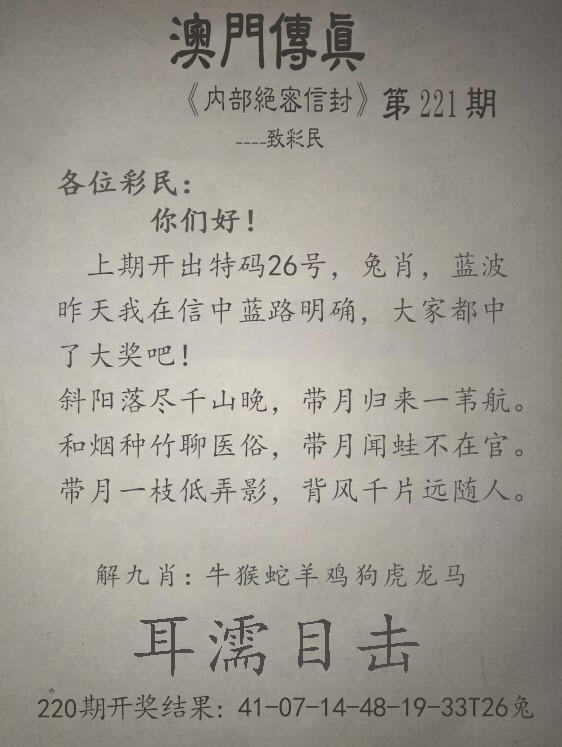 澳門傳眞
《内部絕密信封》第221期
----致彩民
各位彩民：
你们好！
上期开出特码26号，兔肖，蓝波
昨天我在信中蓝路明确，大家都中
了大奖吧！
斜阳落尽千山晚，带月归来一苇航。
和烟种竹聊医俗，带月闻蛙不在官。
带月一枝低弄影，背风千片远随人。
解九肖：牛猴蛇羊鸡狗虎龙马
耳濡目击
220期开奖结果：41-07-14-48-19-33T26兔